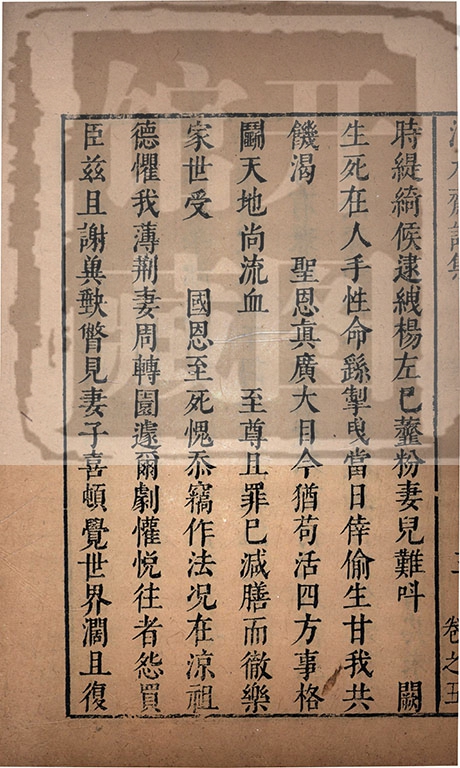 詩集
三
卷之五
時緹綺候逮絏楊左已虀粉妻兒難呌　闕
生死在人手性命繇掣曳當日倖偷生甘我共
饑渴　聖恩真廣大目今猶苟活四方事格
鬭天地尚流血　至尊且罪已減膳而徹樂
家世受　國恩至死愧忝竊作法况在涼祖
德懼我薄荆妻周轉圜遽爾劇懽悅往者怨買
臣兹且謝瞥見妻子喜頓覺世界濶且復
开圖
館藏